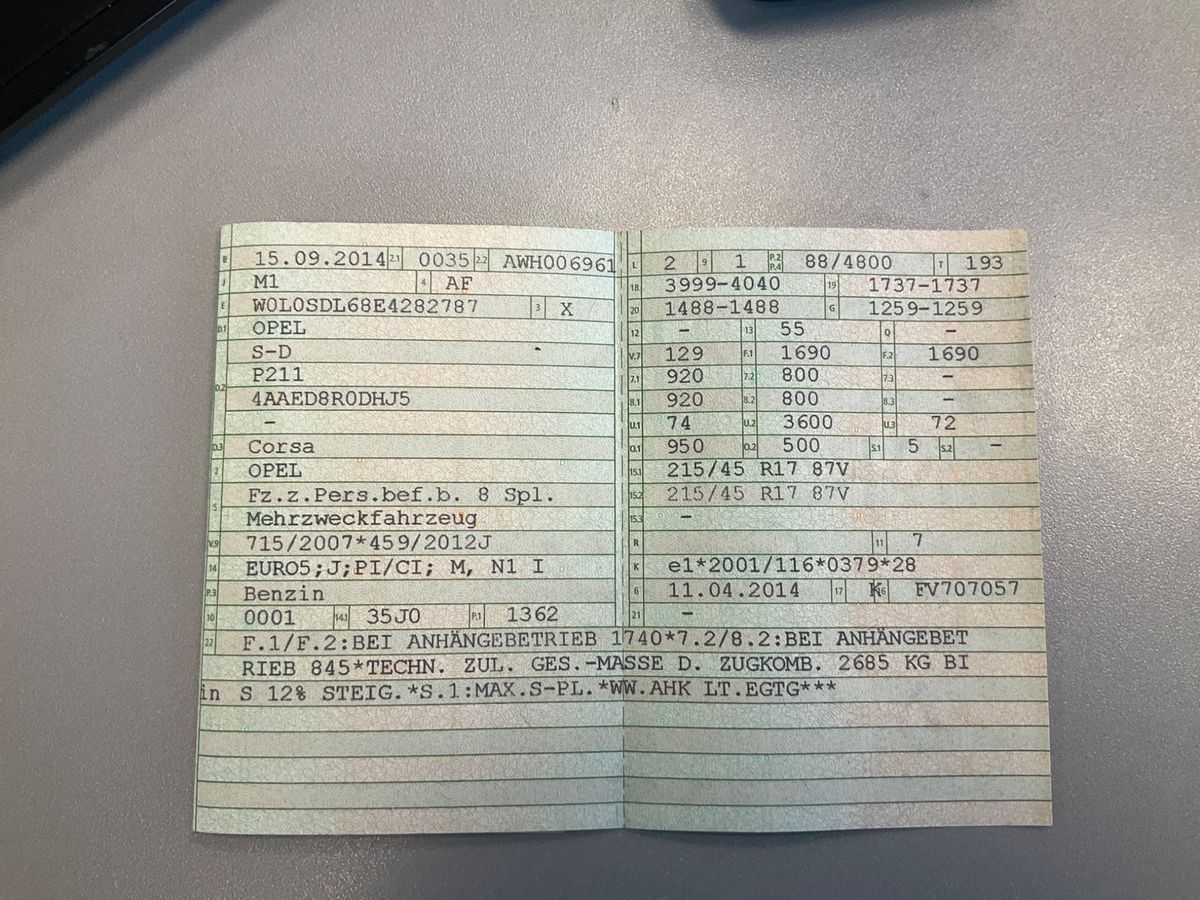 B 15.09.2014 2.1 0035 2.2 AWH006961
J M1 4 AF
E W0L0SDL68E4282787 3 X
D.1 OPEL
D.2 S-D
P211
4AAED8R0DHJ5
-
D.3 Corsa
2 OPEL
5 Fz.z.Pers.bef.b. 8 Spl.
Mehrzweckfahrzeug
V.9 715/2007*459/2012J
14 EURO5;J;PI/CI; M, N1 I
P.3 Benzin
10 0001 14.1 35J0 P.1 1362
L 2 9 1 P.2 P.4 88/4800 T 193
18 3999-4040 19 1737-1737
20 1488-1488 G 1259-1259
12 - 13 55 Q -
V.7 129 F.1 1690 F.2 1690
7.1 920 7.2 800 7.3 -
8.1 920 8.2 800 8.3 -
U.1 74 U.2 3600 U.3 72
O.1 950 O.2 500 S.1 5 S.2 -
15.1 215/45 R17 87V
15.2 215/45 R17 87V
15.3 -
R 11 7
K e1*2001/116*0379*28
6 11.04.2014 17 K 16 FV707057
21 -
22 F.1/F.2:BEI ANHÄNGEBETRIEB 1740*7.2/8.2:BEI ANHÄNGEBET
RIEB 845*TECHN. ZUL. GES.-MASSE D. ZUGKOMB. 2685 KG BI
in S 12% STEIG.*S.1:MAX.S-PL.*WW.AHK LT.EGTG***